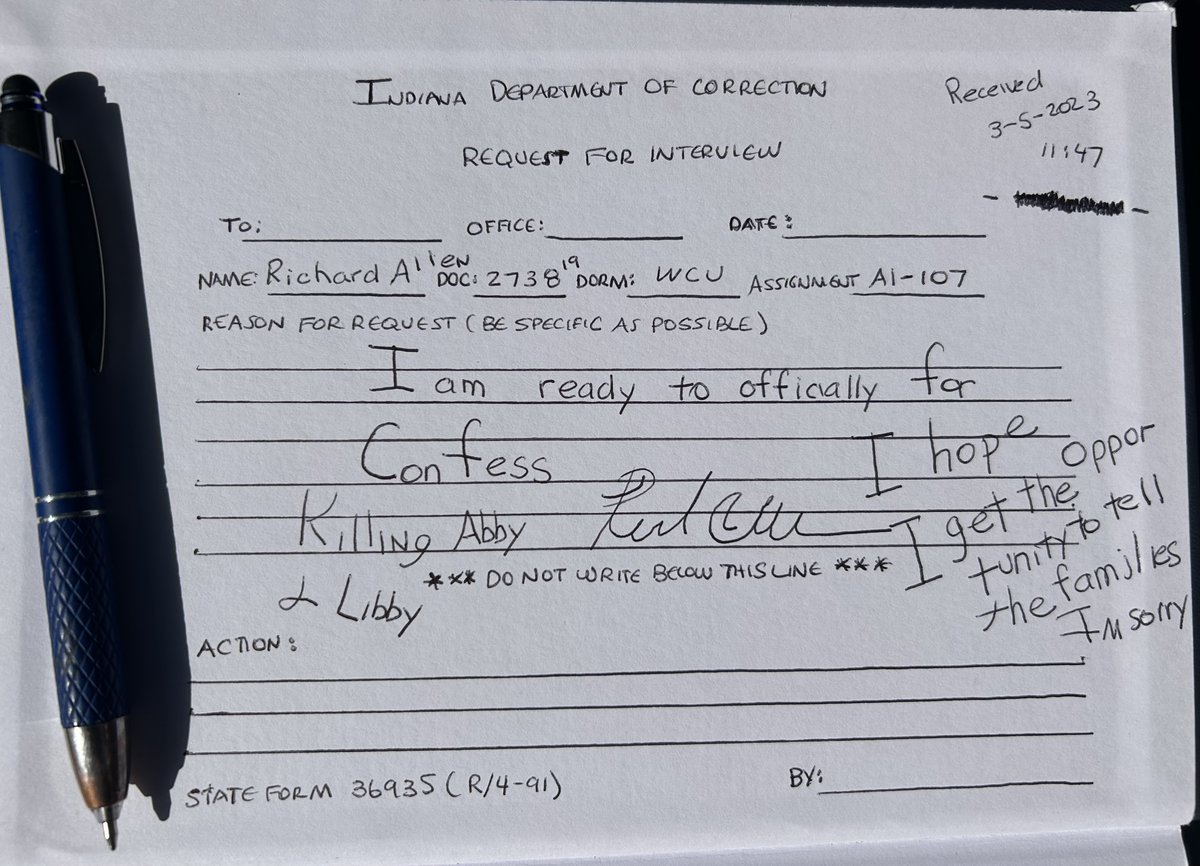 INDIANA DEPARTMENT OF CORRECTION
Received
3-5-2023
11:47
REQUEST FOR INTERVIEW
TO:
OFFICE:
DATE:
NAME: Richard Allen DOC: 273819 DORM: WCU ASSIGNMENT A1-107
REASON FOR REQUEST (BE SPECIFIC AS POSSIBLE)
I am ready to officially for
Confess
Killing Abby
& Libby
I hope
I get the oppor
tunity to tell
the families
I'm sorry
*** DO NOT WRITE BELOW THIS LINE ***
ACTION:
STATE FORM 36935 (R/4-91)
BY: